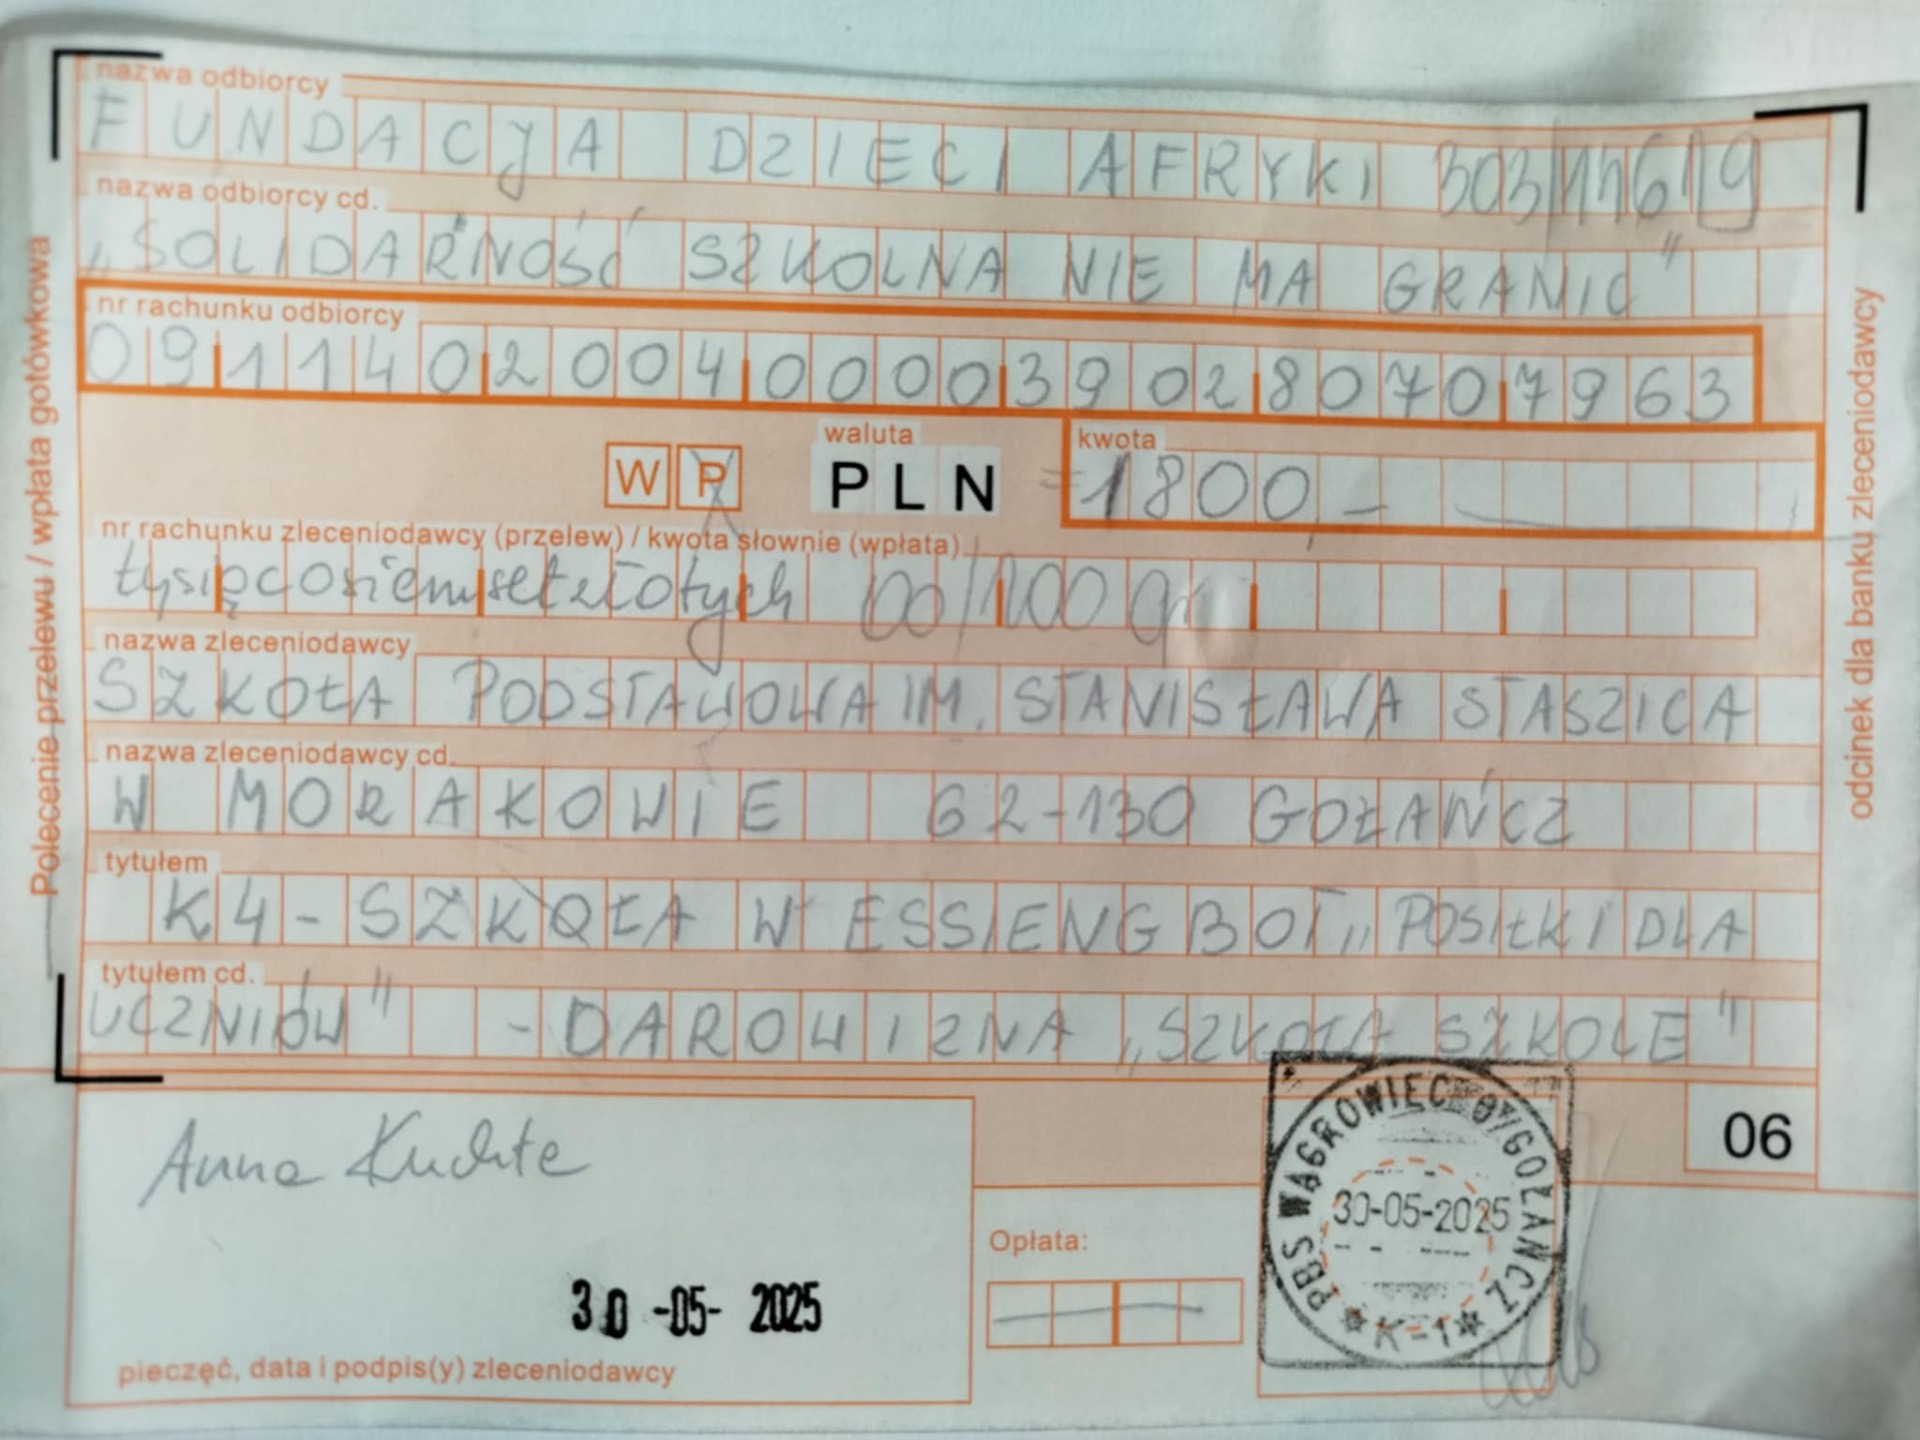 nazwa odbiorcy
FUNDACJA DZIECI AFRYKI 303/11619
nazwa odbiorcy cd.
„SOLIDARNOŚĆ SZKOLNA NIE MA GRANIC"
nr rachunku odbiorcy
09 1140 2004 0000 3902 8070 7963
W P waluta PLN kwota =1800,-
nr rachunku zleceniodawcy (przelew) / kwota słownie (wpłata)
tysiąc osiemset złotych 00/100 gr
nazwa zleceniodawcy
SZKOŁA PODSTAWOWA IM. STANISŁAWA STASZICA
nazwa zleceniodawcy cd.
W MORAKOWIE 62-130 GOŁAŃCZ
tytułem
K4 - SZKOŁA W ESSIENGBOT „POSIŁKI DLA
tytułem cd.
UCZNIÓW" - DAROWIZNA „SZKOŁA SZKOLE"
Polecenie przelewu / wpłata gotówkowa
odcinek dla banku zleceniodawcy
06
Anna Kuchta
30 -05- 2025
pieczęć, data i podpis(y) zleceniodawcy
Opłata:
PBS WĄGROWIEC O/GOŁAŃCZ
30-05-2025
K-1